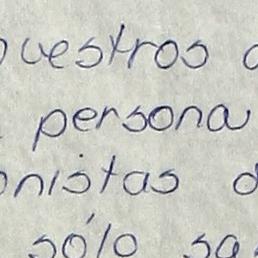 uestros
persona
onistas d
sólo sa